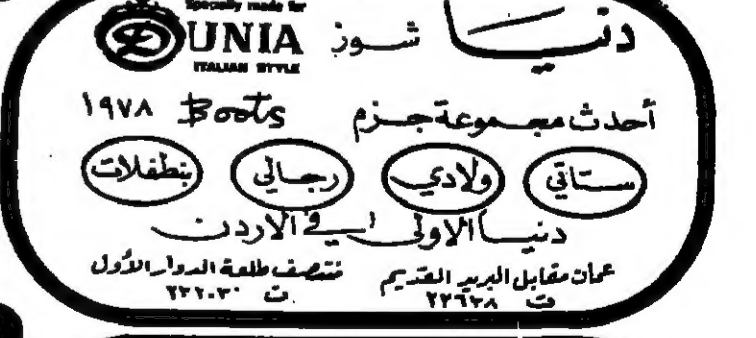 Specially made for
DUNIA
ITALIAN STYLE
دنيا شوز
أحدث مجموعة جزم Boots ١٩٧٨
ستاتي ولادي رجالي بنطفلات
دنيا الاولى في الاردن
عمان مقابل البريد القديم
ت ٢٢٦٣٨
منتصف طلعة الدوار الأول
ت ٢٢٢٠٣٠